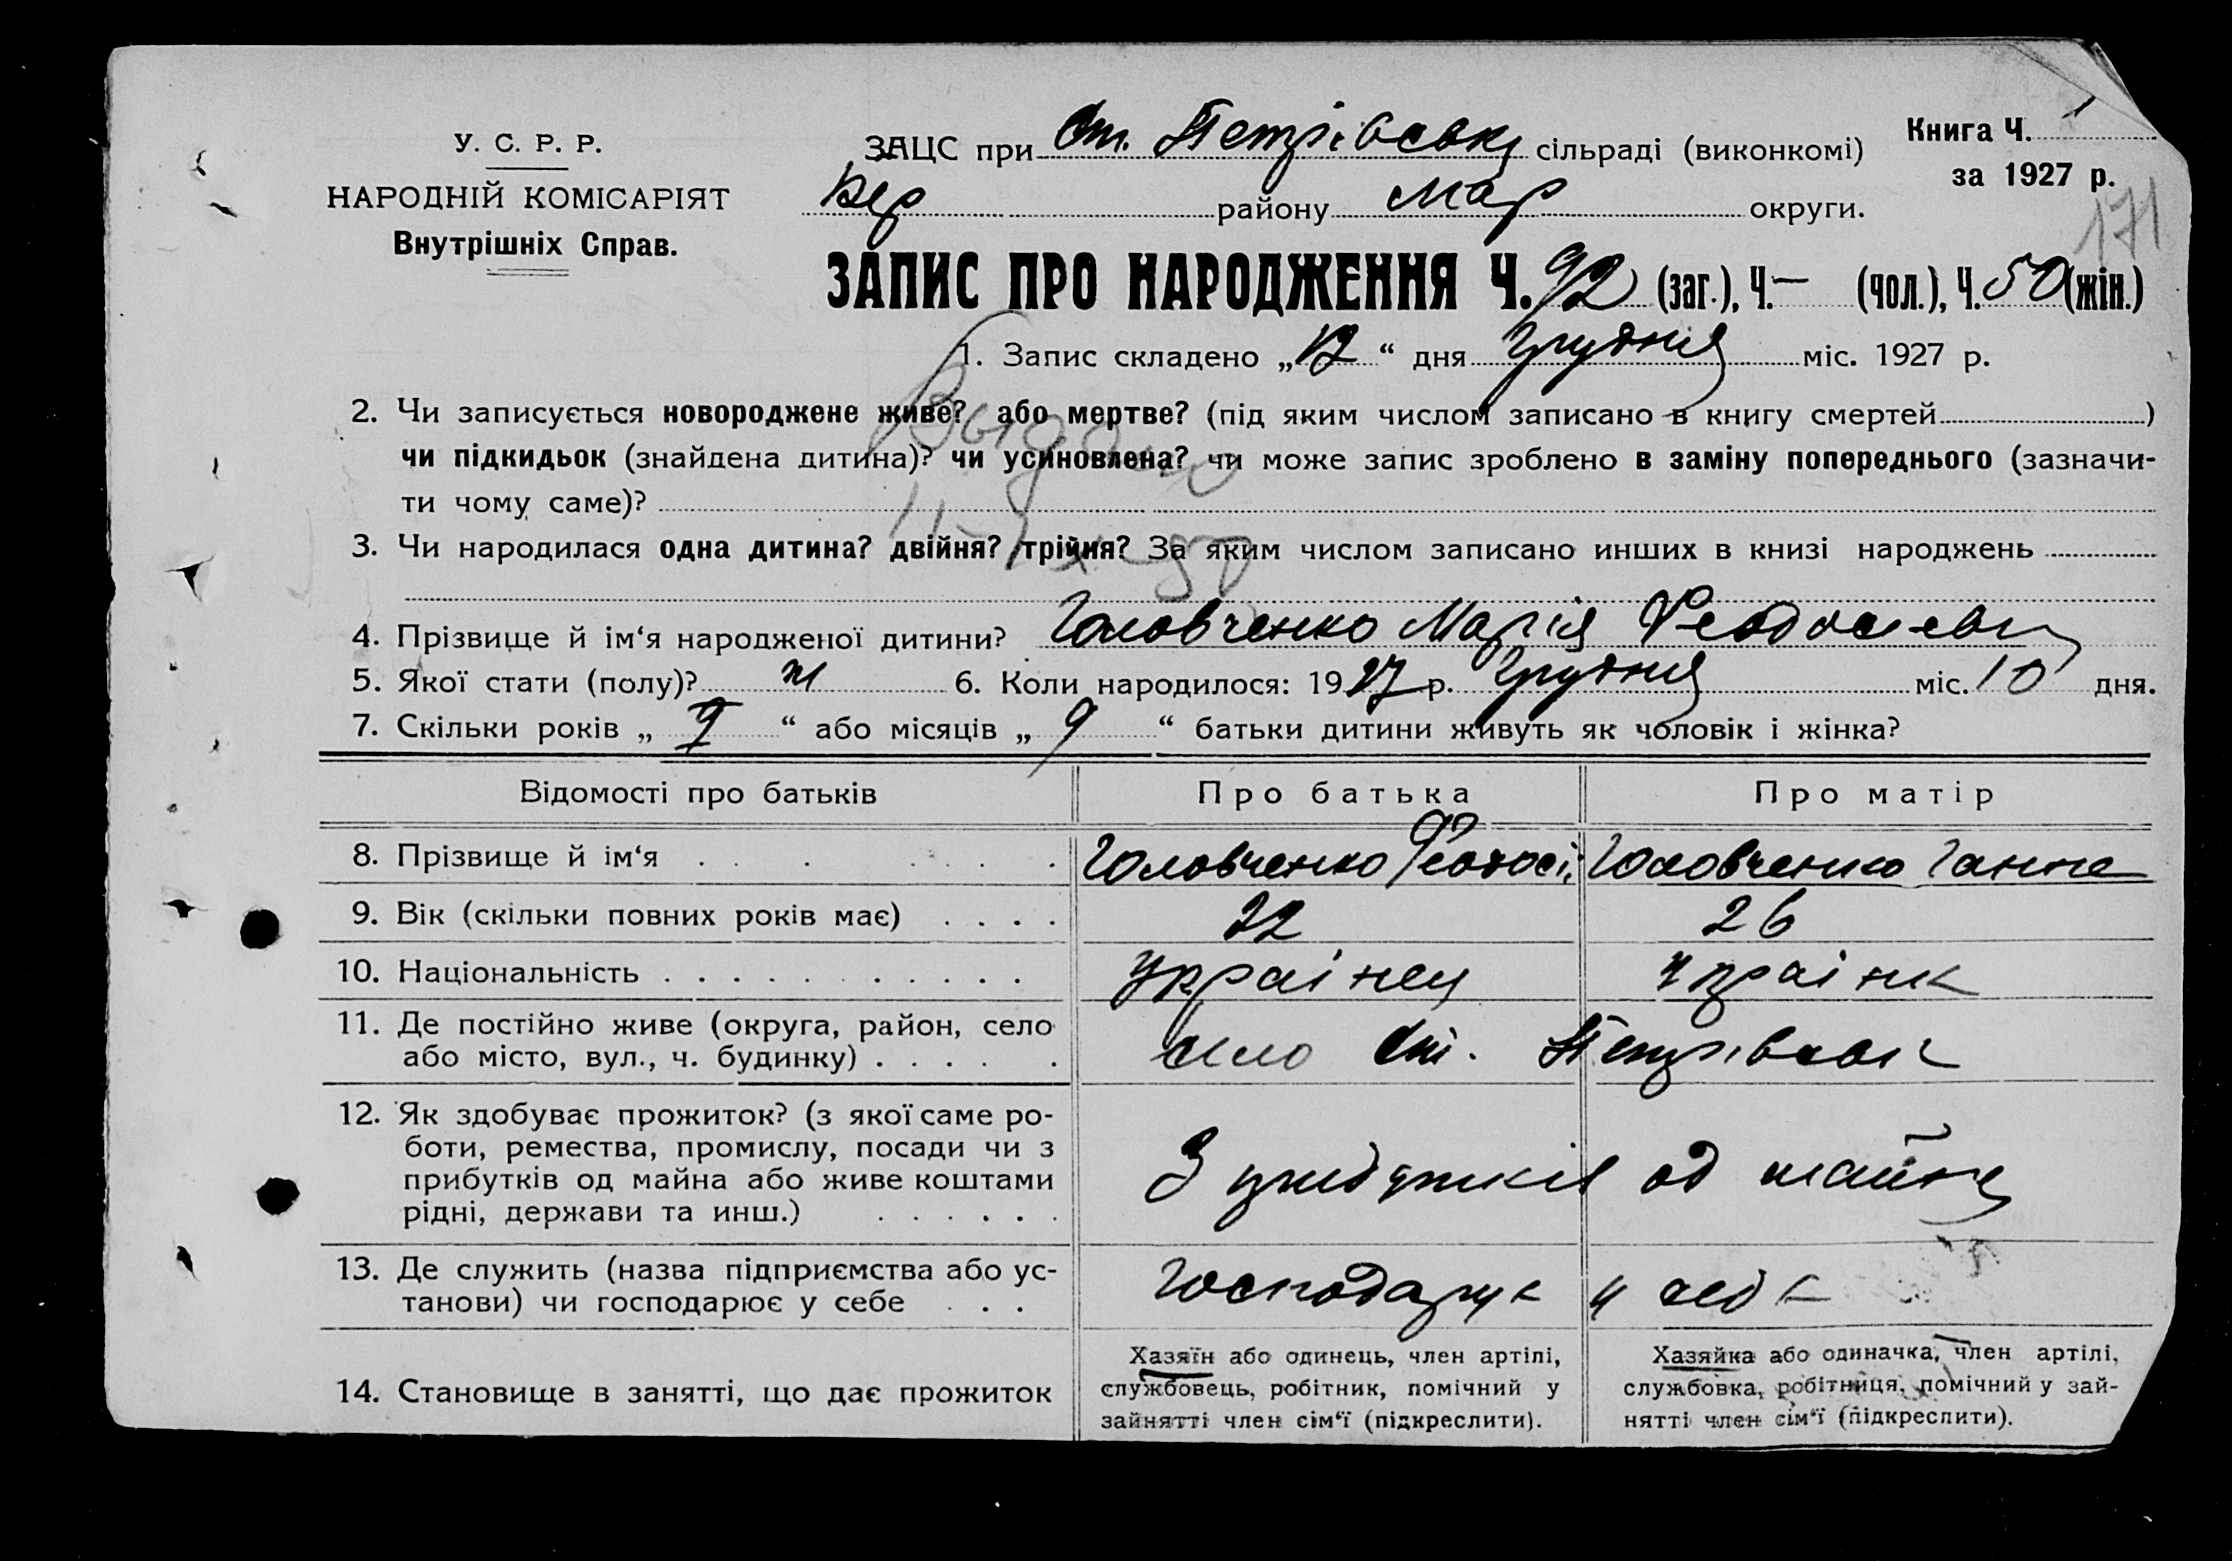 У. С. Р. Р.
НАРОДНІЙ КОМІСАРІЯТ
Внутрішніх Справ.
ЗАЦС при Ст. Петрівськ сільраді (виконкомі)
Книга Ч. 1
за 1927 р.
Бер району Мар округи.
171
ЗАПИС ПРО НАРОДЖЕННЯ Ч. 92 (заг.), Ч. — (чол.), Ч. 50 (жін.)
1. Запис складено „12“ дня Грудня міс. 1927 р.
2. Чи записується новороджене живе? або мертве? (під яким числом записано в книгу смертей)
чи підкидьок (знайдена дитина)? чи усиновлена? чи може запис зроблено в заміну попереднього (зазначи-
ти чому саме)?
3. Чи народилася одна дитина? двійня? трійня? За яким числом записано инших в книзі народжень
4. Прізвище й ім‘я народженої дитини? Головченко Марія
5. Якої стати (полу)? ж 6. Коли народилося: 1927 р. Грудня міс. 10 дня.
7. Скільки років „ “ або місяців „ 9 “ батьки дитини живуть як чоловік і жінка?
Відомості про батьків Про батька Про матір
8. Прізвище й ім‘я Головченко Феодосі Головченко Ганна
9. Вік (скільки повних років має) 22 26
10. Національність Українец Українк
11. Де постійно живе (округа, район, село
або місто, вул., ч. будинку) село Ст. Петрівськ
12. Як здобуває прожиток? (з якої саме ро-
боти, ремества, промислу, посади чи з
прибутків од майна або живе коштами
рідні, держави та инш.) З од майна
13. Де служить (назва підприємства або ус-
танови) чи господарює у себе Господарує у себе
14. Становище в занятті, що дає прожиток
Хазяїн або одинець, член артілі,
службовець, робітник, помічний у
зайнятті член сім‘ї (підкреслити).
Хазяйка або одиначка, член артілі,
службовка, робітниця, помічний у зай-
нятті член сім‘ї (підкреслити).